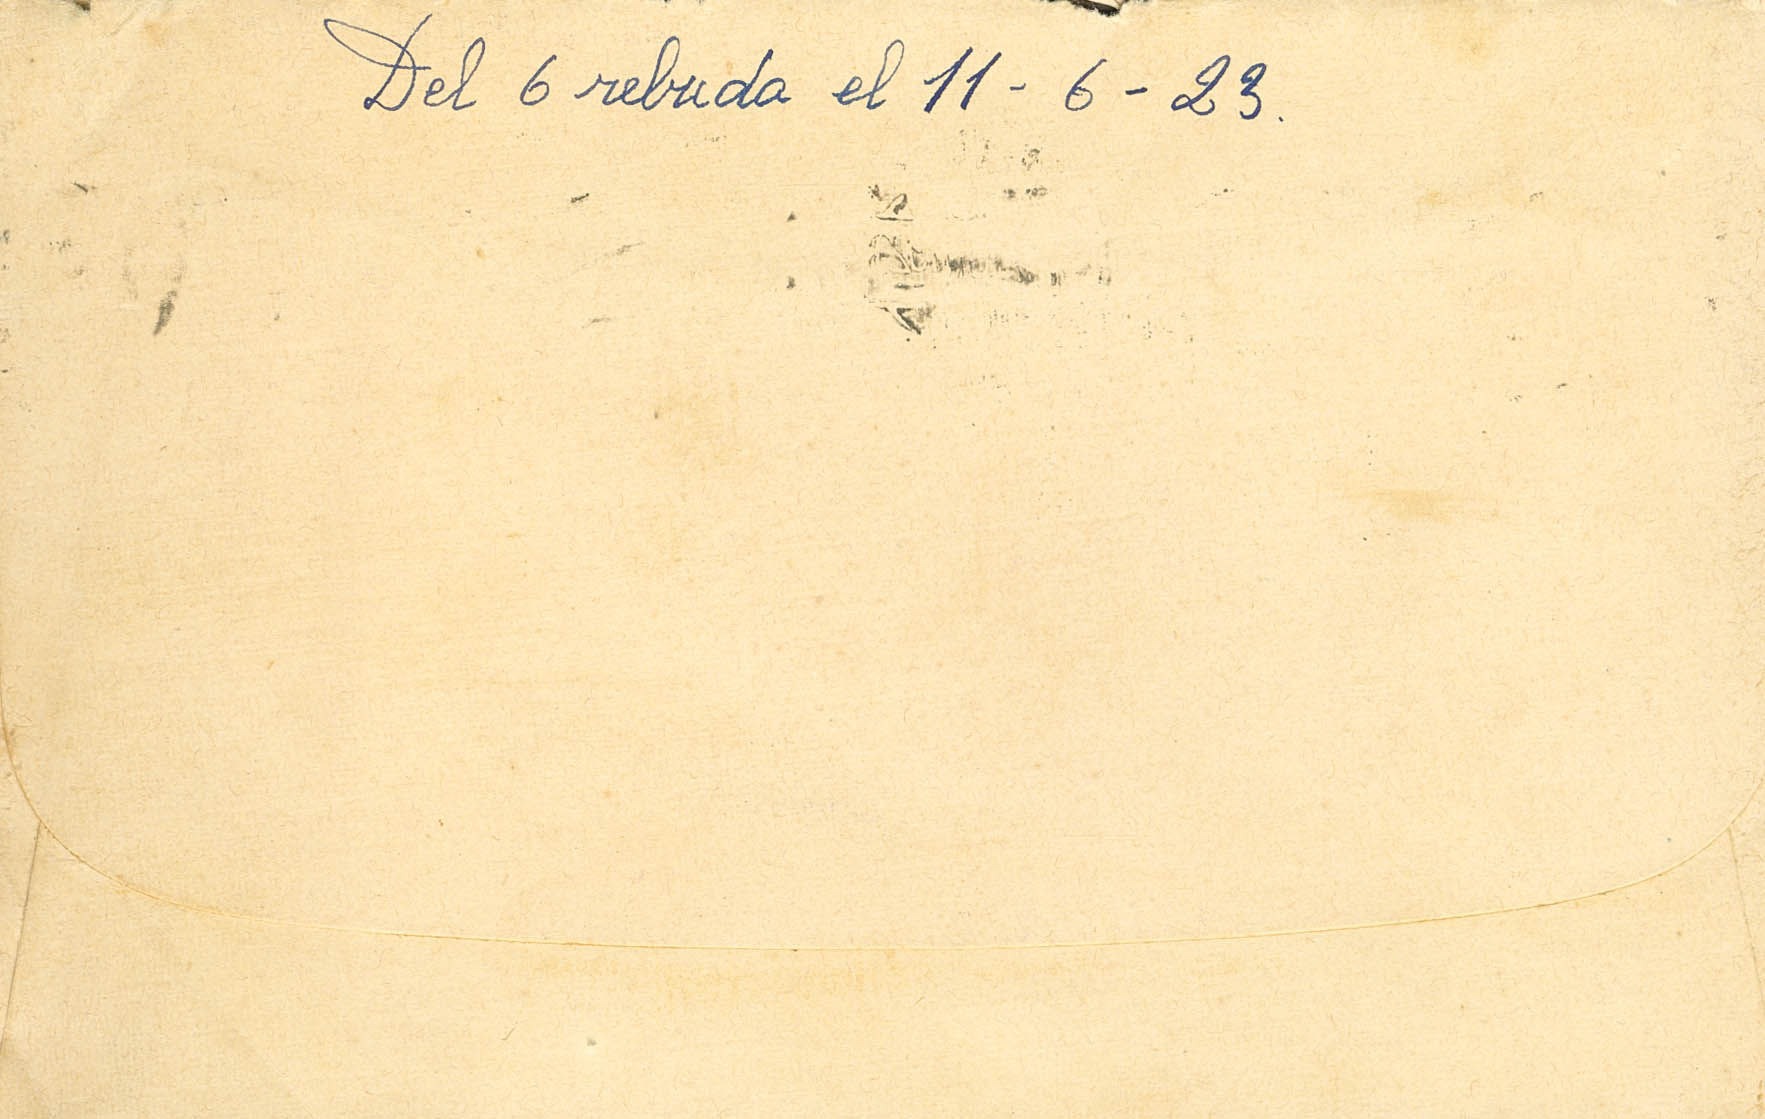 Del 6 rebuda el 11 - 6 - 23.